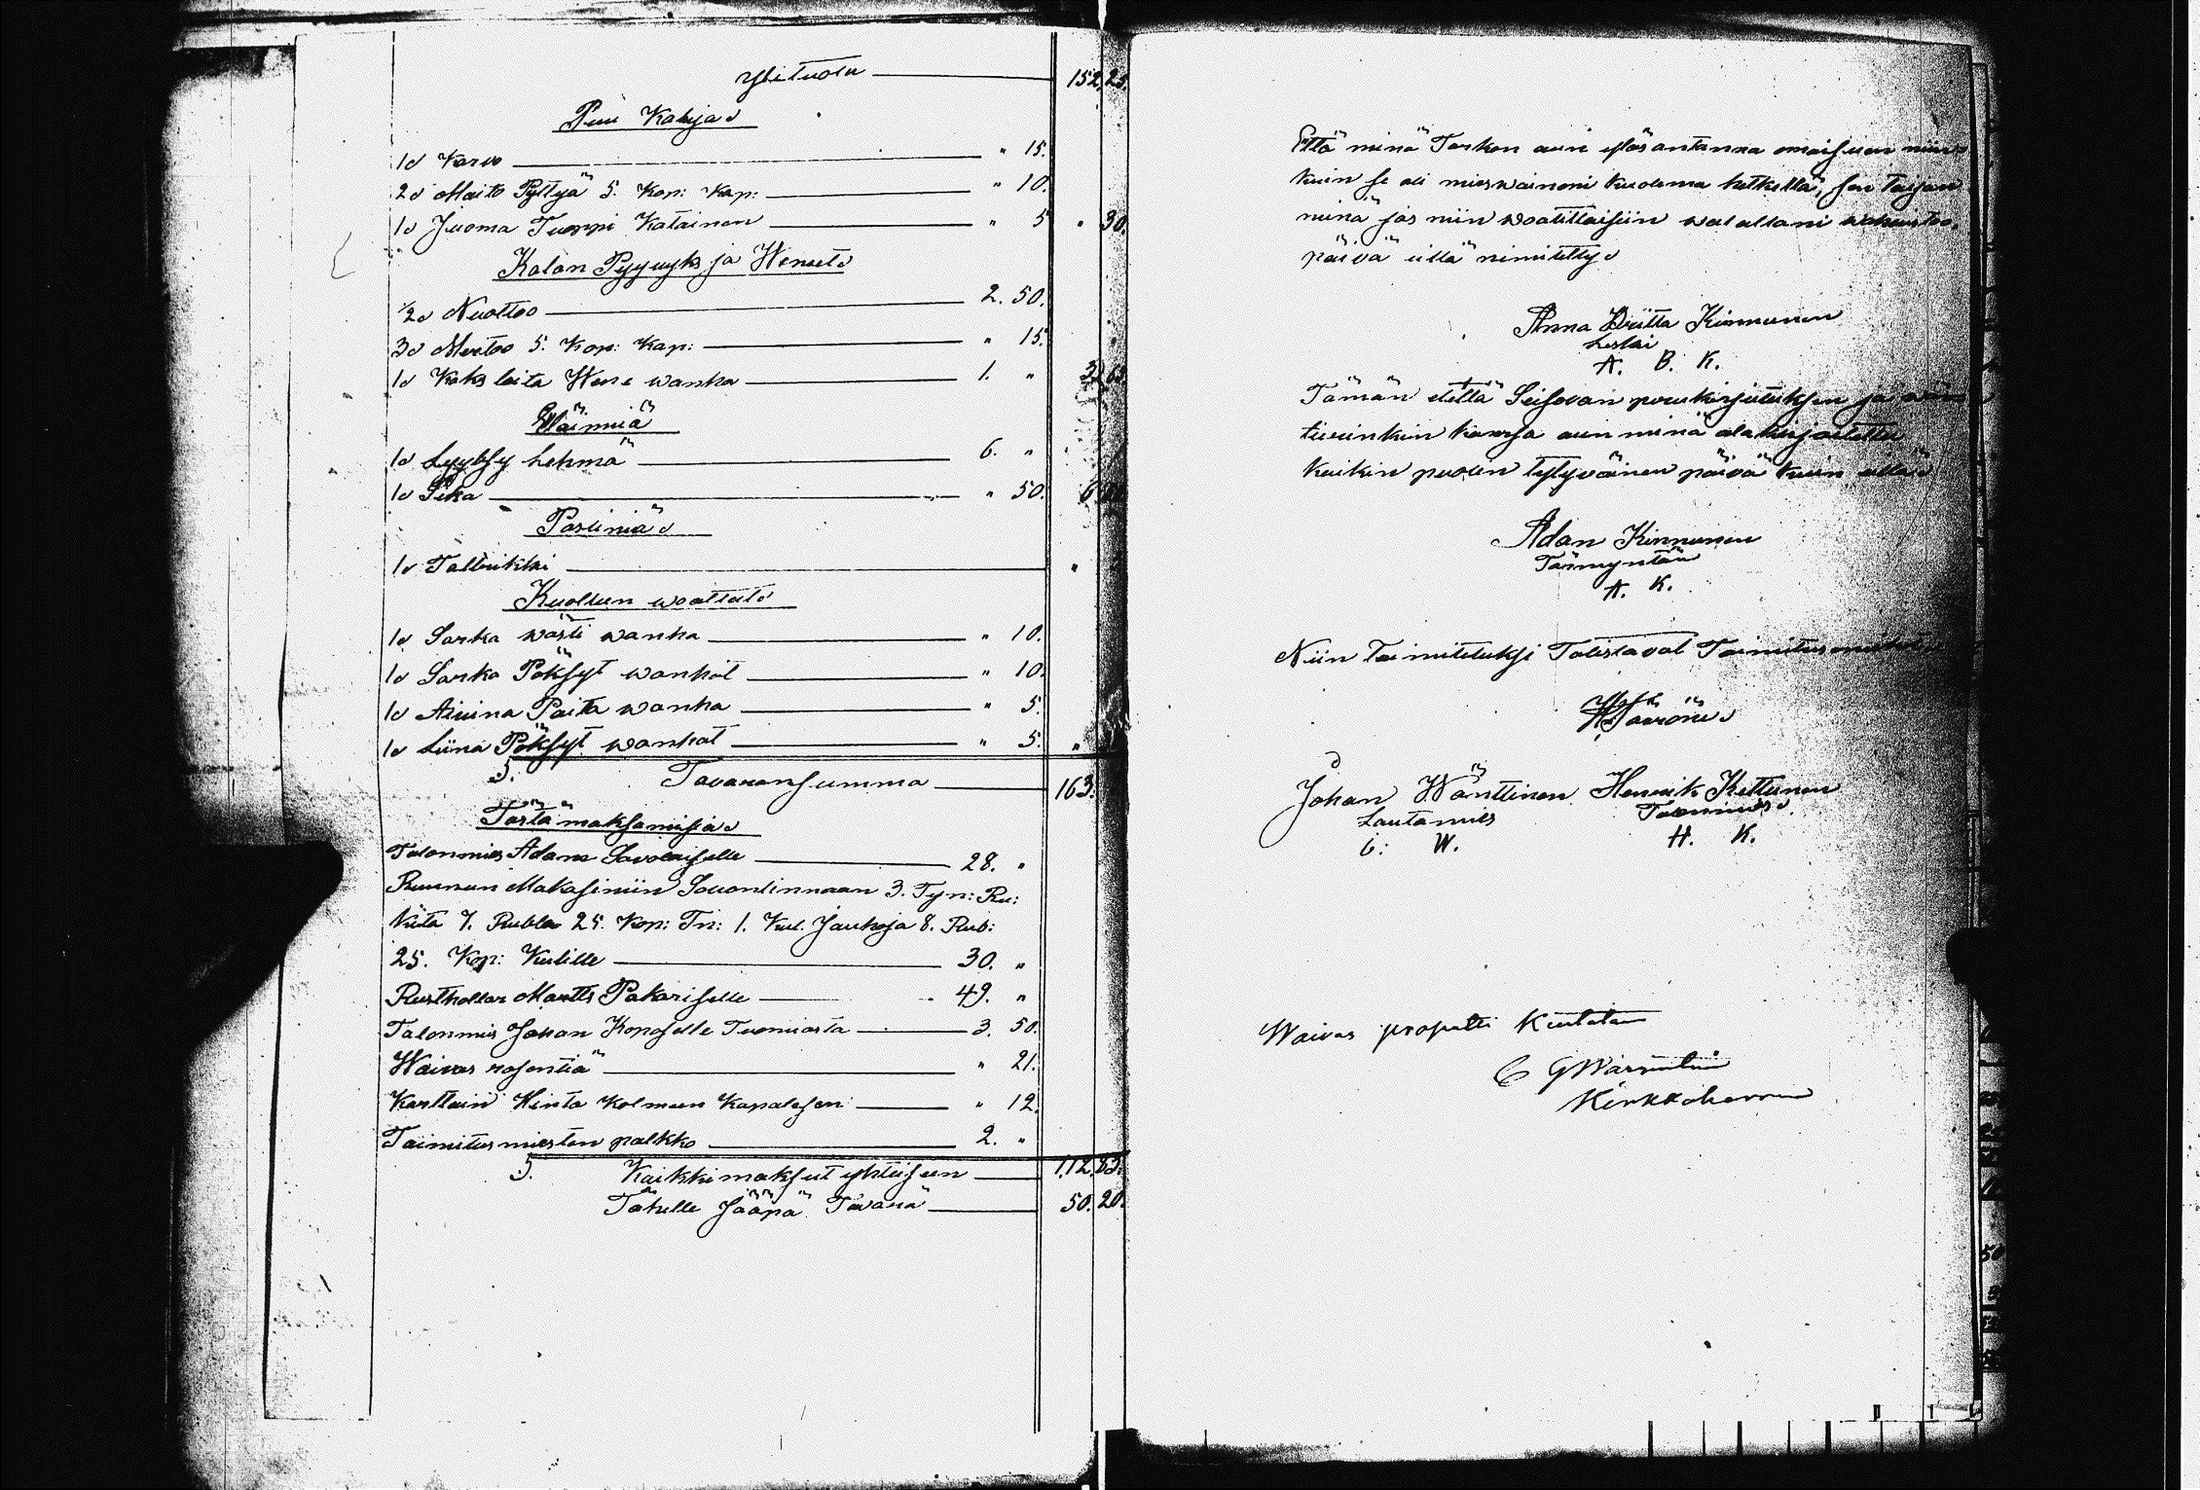 Ylituotu 152. 25.
Puu Kaluja
1 Korvo " 15.
2 Maito Pyttyä 5. Kop: Kap: " 10.
1 Juoma Tuoppi Katainen " 5 " 30.
Kalan Pyyvyks ja Weneet
1/2 Nuottoo 2. 50.
3 Mertoo 5. Kop: Kap: " 15.
1 Kaks laita Wene wanha 1. " 3. 65.
Eläimiä
1 Lyyvsy Lehmä 6. "
1 Sika " 50. 6.
Posliniä
1 Talbrikki "
Kuollun woatteet
1 Sarka wästi wanha " 10.
1 Sarka Pöksyt wanhat " 10.
1 Aivina Paita wanha " 5.
1 Liina Pöksyt wanhat " 5. "
S. Tavaransumma 163.
Tästä maksamisia
Talonmies Adam Savolaiselle 28. "
Ruunun Makasiniin Savonlinnaan 3. Tyn: Ru:
kiita 7. Rubla 25. Kop: Tn: 1. Kul. Jauhoja 8. Rub:
25. Kop: Kulille 30. "
Rusthollar Martti Pakariselle 49. "
Talonmies Johan Konoselle Tuomiosta 3. 50.
Waivas rosentia " 21.
Karttain Hinta Kolmeen Kapalesen " 12.
Toimitus miesten palkko 2. "
S. Kaikki maksut yhteiseen 112. 83.
Tähelle Jääpä Tavara 50. 20.
Että minä Tarkon aun ylösantanna omaisuen niin
kuin se oli mieswainoni kuolema hetkellä, sen taijan
minä jos niin woatittaisiin walallani wahwistoo,
päivä uillä nimitetty
Anna Britta Kinnunen
Leski
A. B. K.
Tämän eteltä Seisovan perukirjutuksen ja
tieruinkin kanssa aun minä alakirjoitettu
kaikin puolin tytyväinen päivä kuin uillä
Adam Kinnunen
Tärmyntää
A. K.
Niin toimitetuksi Tolistavat Toimitusmiehet
Johan Wänttinen Henrik Kettunen
Lautamies Talonmies
I: W. H. K.
Waivas prosentti kuitataan
C G Warmelin
Kirkkoherra